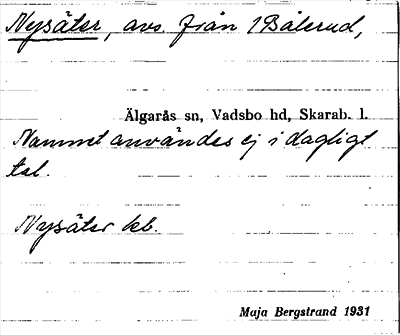 Nysäter, avs. från 1 Bålerud,
Älgarås sn, Vadsbo hd, Skarab. l.
Namnet användes ej i dagligt
tal.
Nysäter kb.
Maja Bergstrand 1931